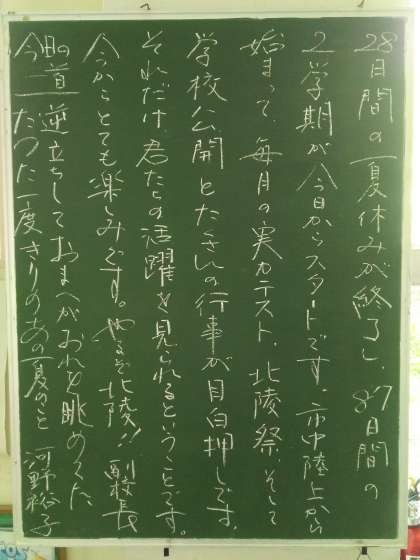 28日間の夏休みが終了し、87日間の
2学期が今日からスタートです。市中陸上から
始まって、毎月の実力テスト、北陵祭、そして
学校公開とたくさんの行事が目白押しです。
それだけ、君たちの活躍を見られるということです。
今からとても楽しみです。やるぞ北陵!! 副校長
今日の道 逆立ちしておまへがおれを眺めてた
たつた一度きりのあの夏のこと 河野裕子